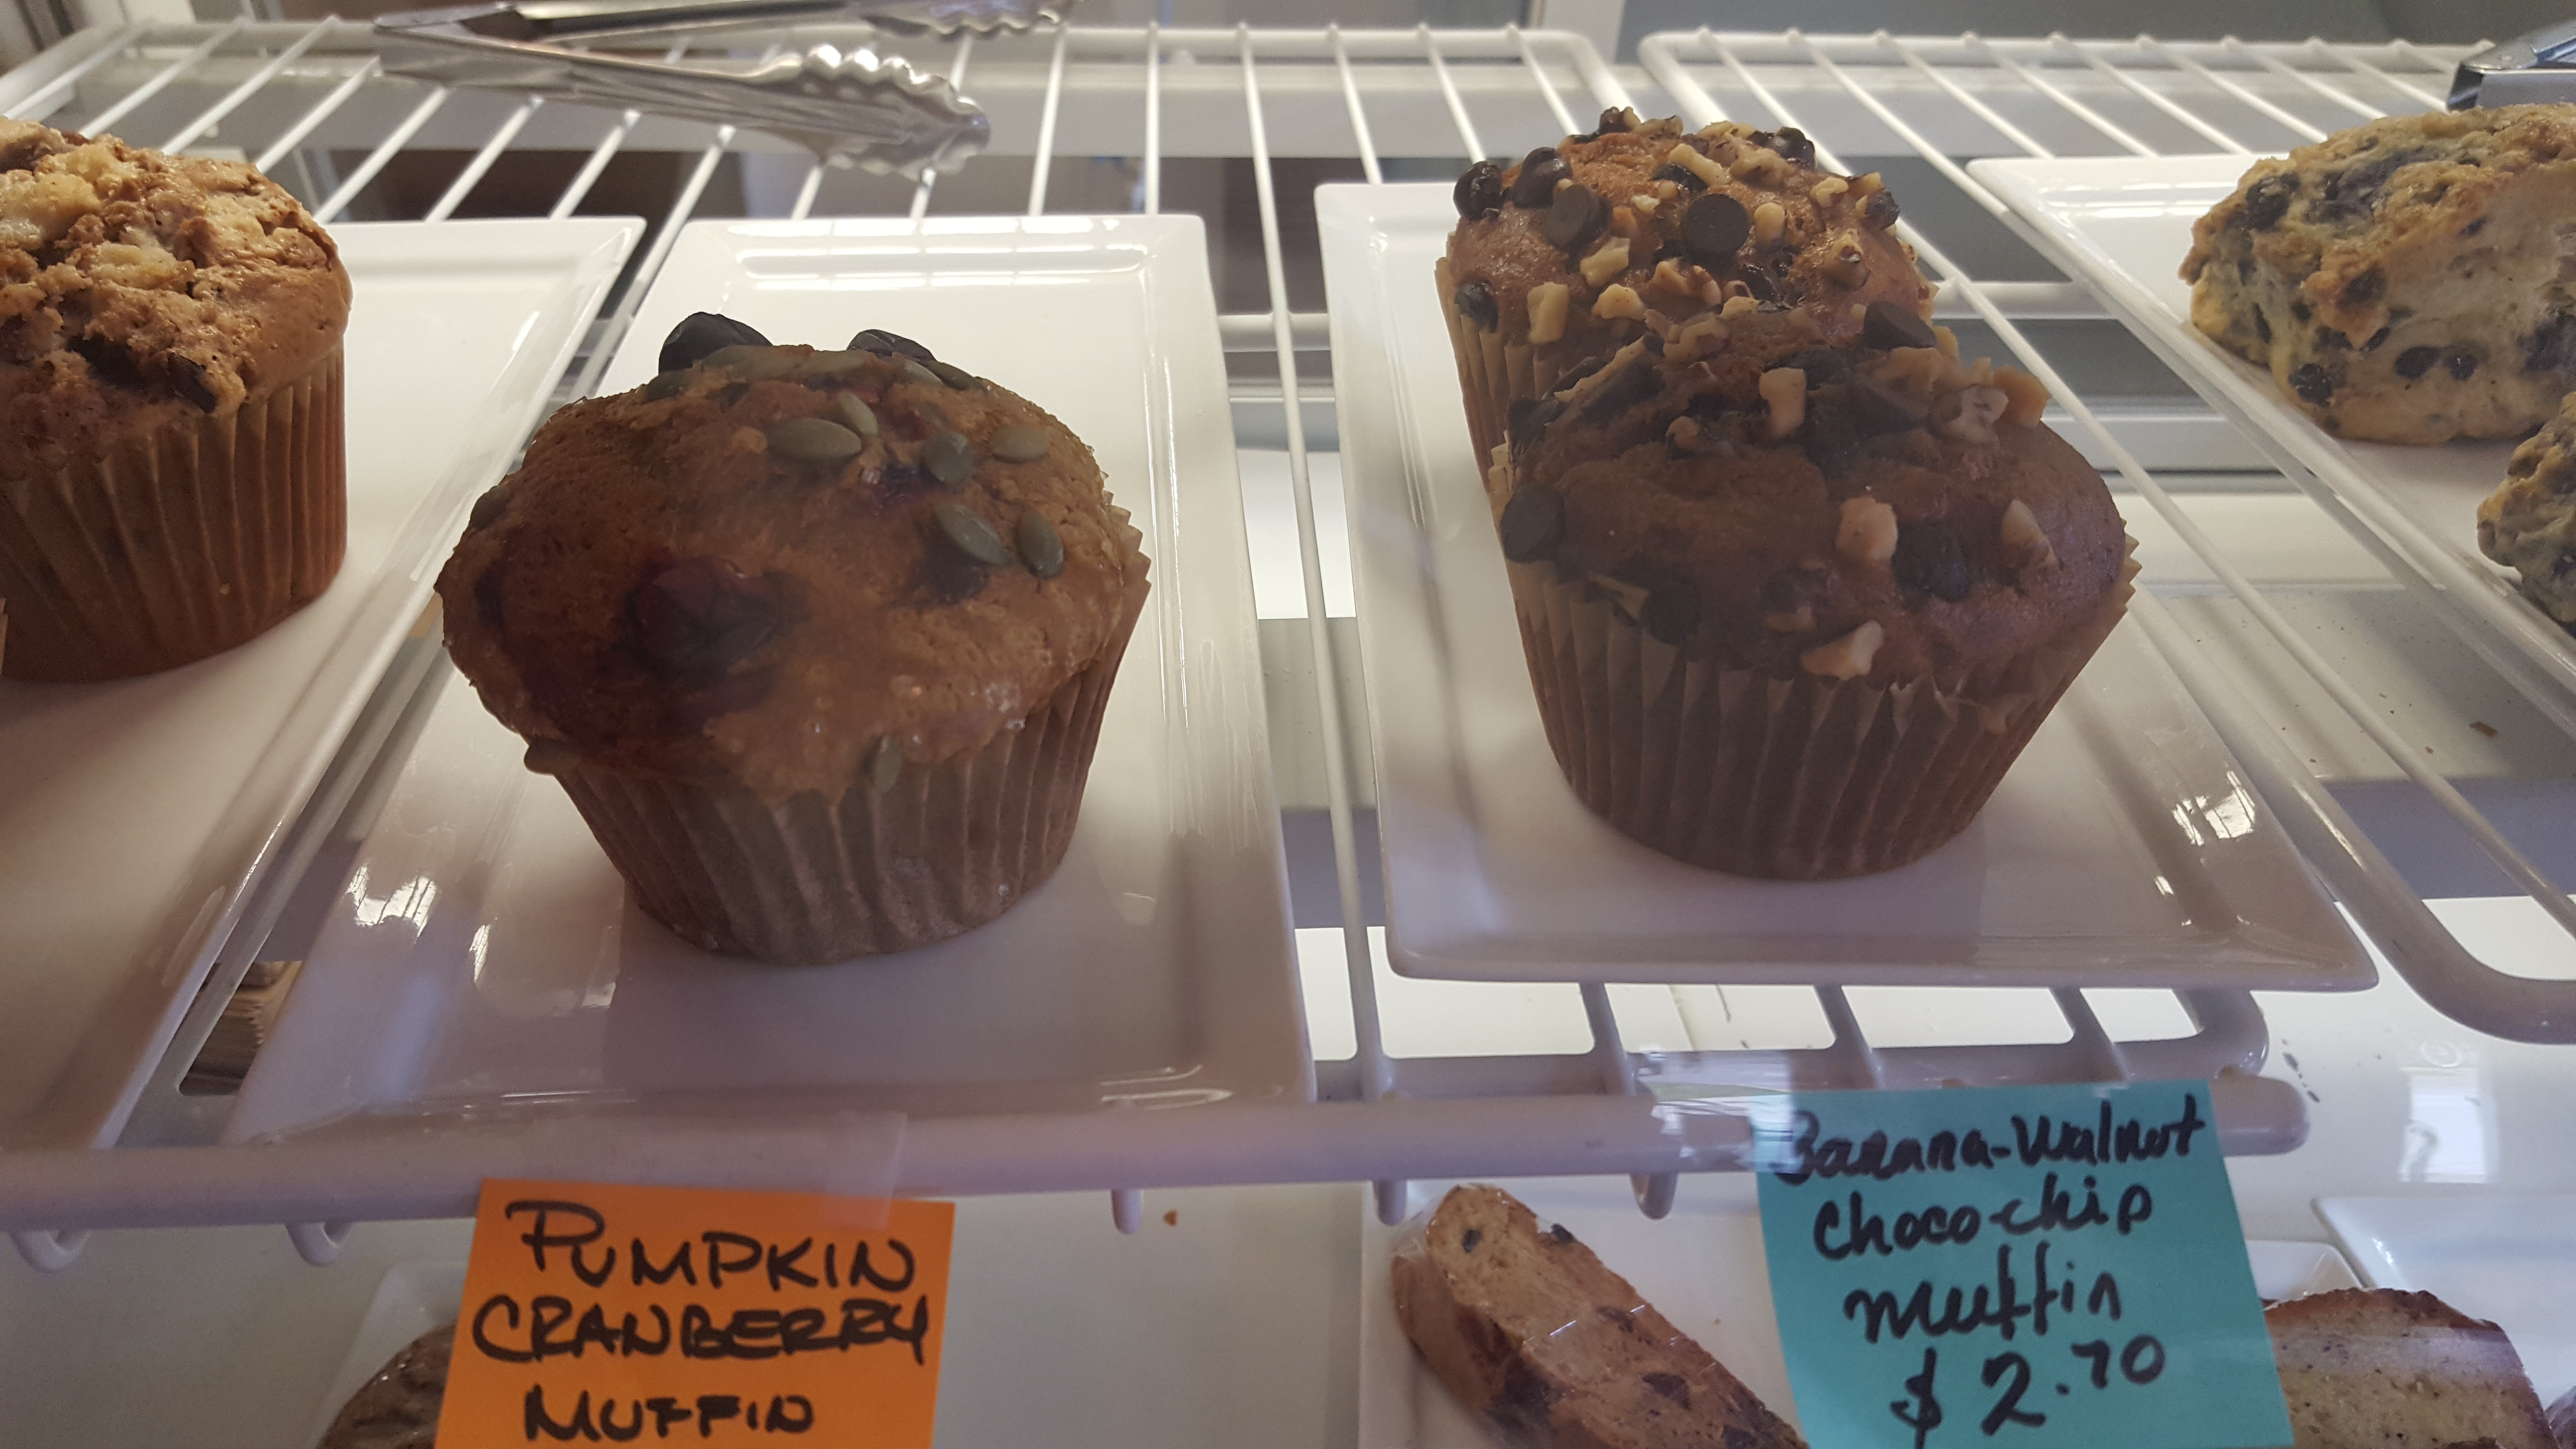 PUMPKIN
CRANBERRY
MUFFIN
Banana-Walnut
Choco-chip
muffin
$2.70